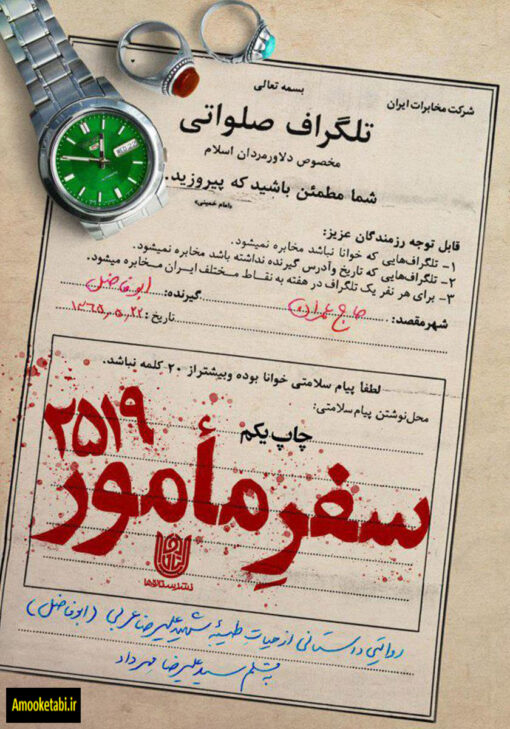 بسمه تعالی
شرکت مخابرات ایران
تلگراف صلواتی
مخصوص دلاورمردان اسلام
شما مطمئن باشید که پیروزید.
«امام خمینی»
قابل توجه رزمندگان عزیز:
۱- تلگراف‌هایی که خوانا نباشد مخابره نمیشود.
۲- تلگراف‌هایی که تاریخ وآدرس گیرنده نداشته باشد مخابره نمیشود.
۳- برای هر نفر یک تلگراف در هفته به نقاط مختلف ایران مخابره میشود.
شهرمقصد: حاج عمران گیرنده: ابوفاضل
تاریخ: ۱۳۶۵،۵،۲۲
لطفا پیام سلامتی خوانا بوده وبیشتراز ۲۰ کلمه نباشد.
محل‌نوشتن پیام‌سلامتی:
چاپ یکم
۲۵۱۹
سفرِ مأمور
نشر ستاره‌ها
روایتی داستانی از حیات طیبهٔ شهید علیرضا عربی (ابوفاضل)
بقلم سیدعلیرضا مهرداد
Amooketabi.ir